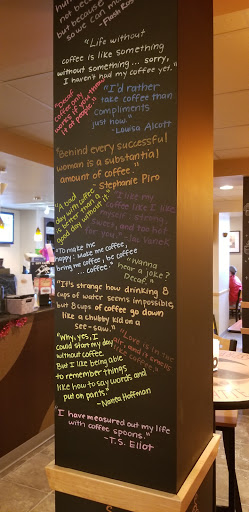 not because
but because
so we can mo
- Flash Ros
"Life without
coffee is like something
without something... sorry,
I haven't had my coffee yet."
"Decaf
coffee only
works if you throw
it at people."
"I'd rather
take coffee than
compliments
just now."
- Louisa Alcott
"Behind every successful
woman is a substantial
amount of coffee."
- Stephanie Piro
"A bad
day with coffee
is better than a
good day without it."
"I like my
coffee like I like
myself: strong,
sweet, and too hot
for you."
"To make me
happy: Make me coffee,
bring me coffee, be coffee
... coffee."
"Wanna
hear a joke?
Decaf."
"It's strange how drinking 8
cups of water seems impossible,
but 8 cups of coffee go down
like a chubby kid on a
see-saw."
"Why, yes, I
could start my day
without coffee.
But I like being able
to remember things
like how to say words and
put on pants."
- Nanea Hoffman
"Love is in the
air, and it smells
like
"I have measured out my life
with coffee spoons."
-T.S. Eliot